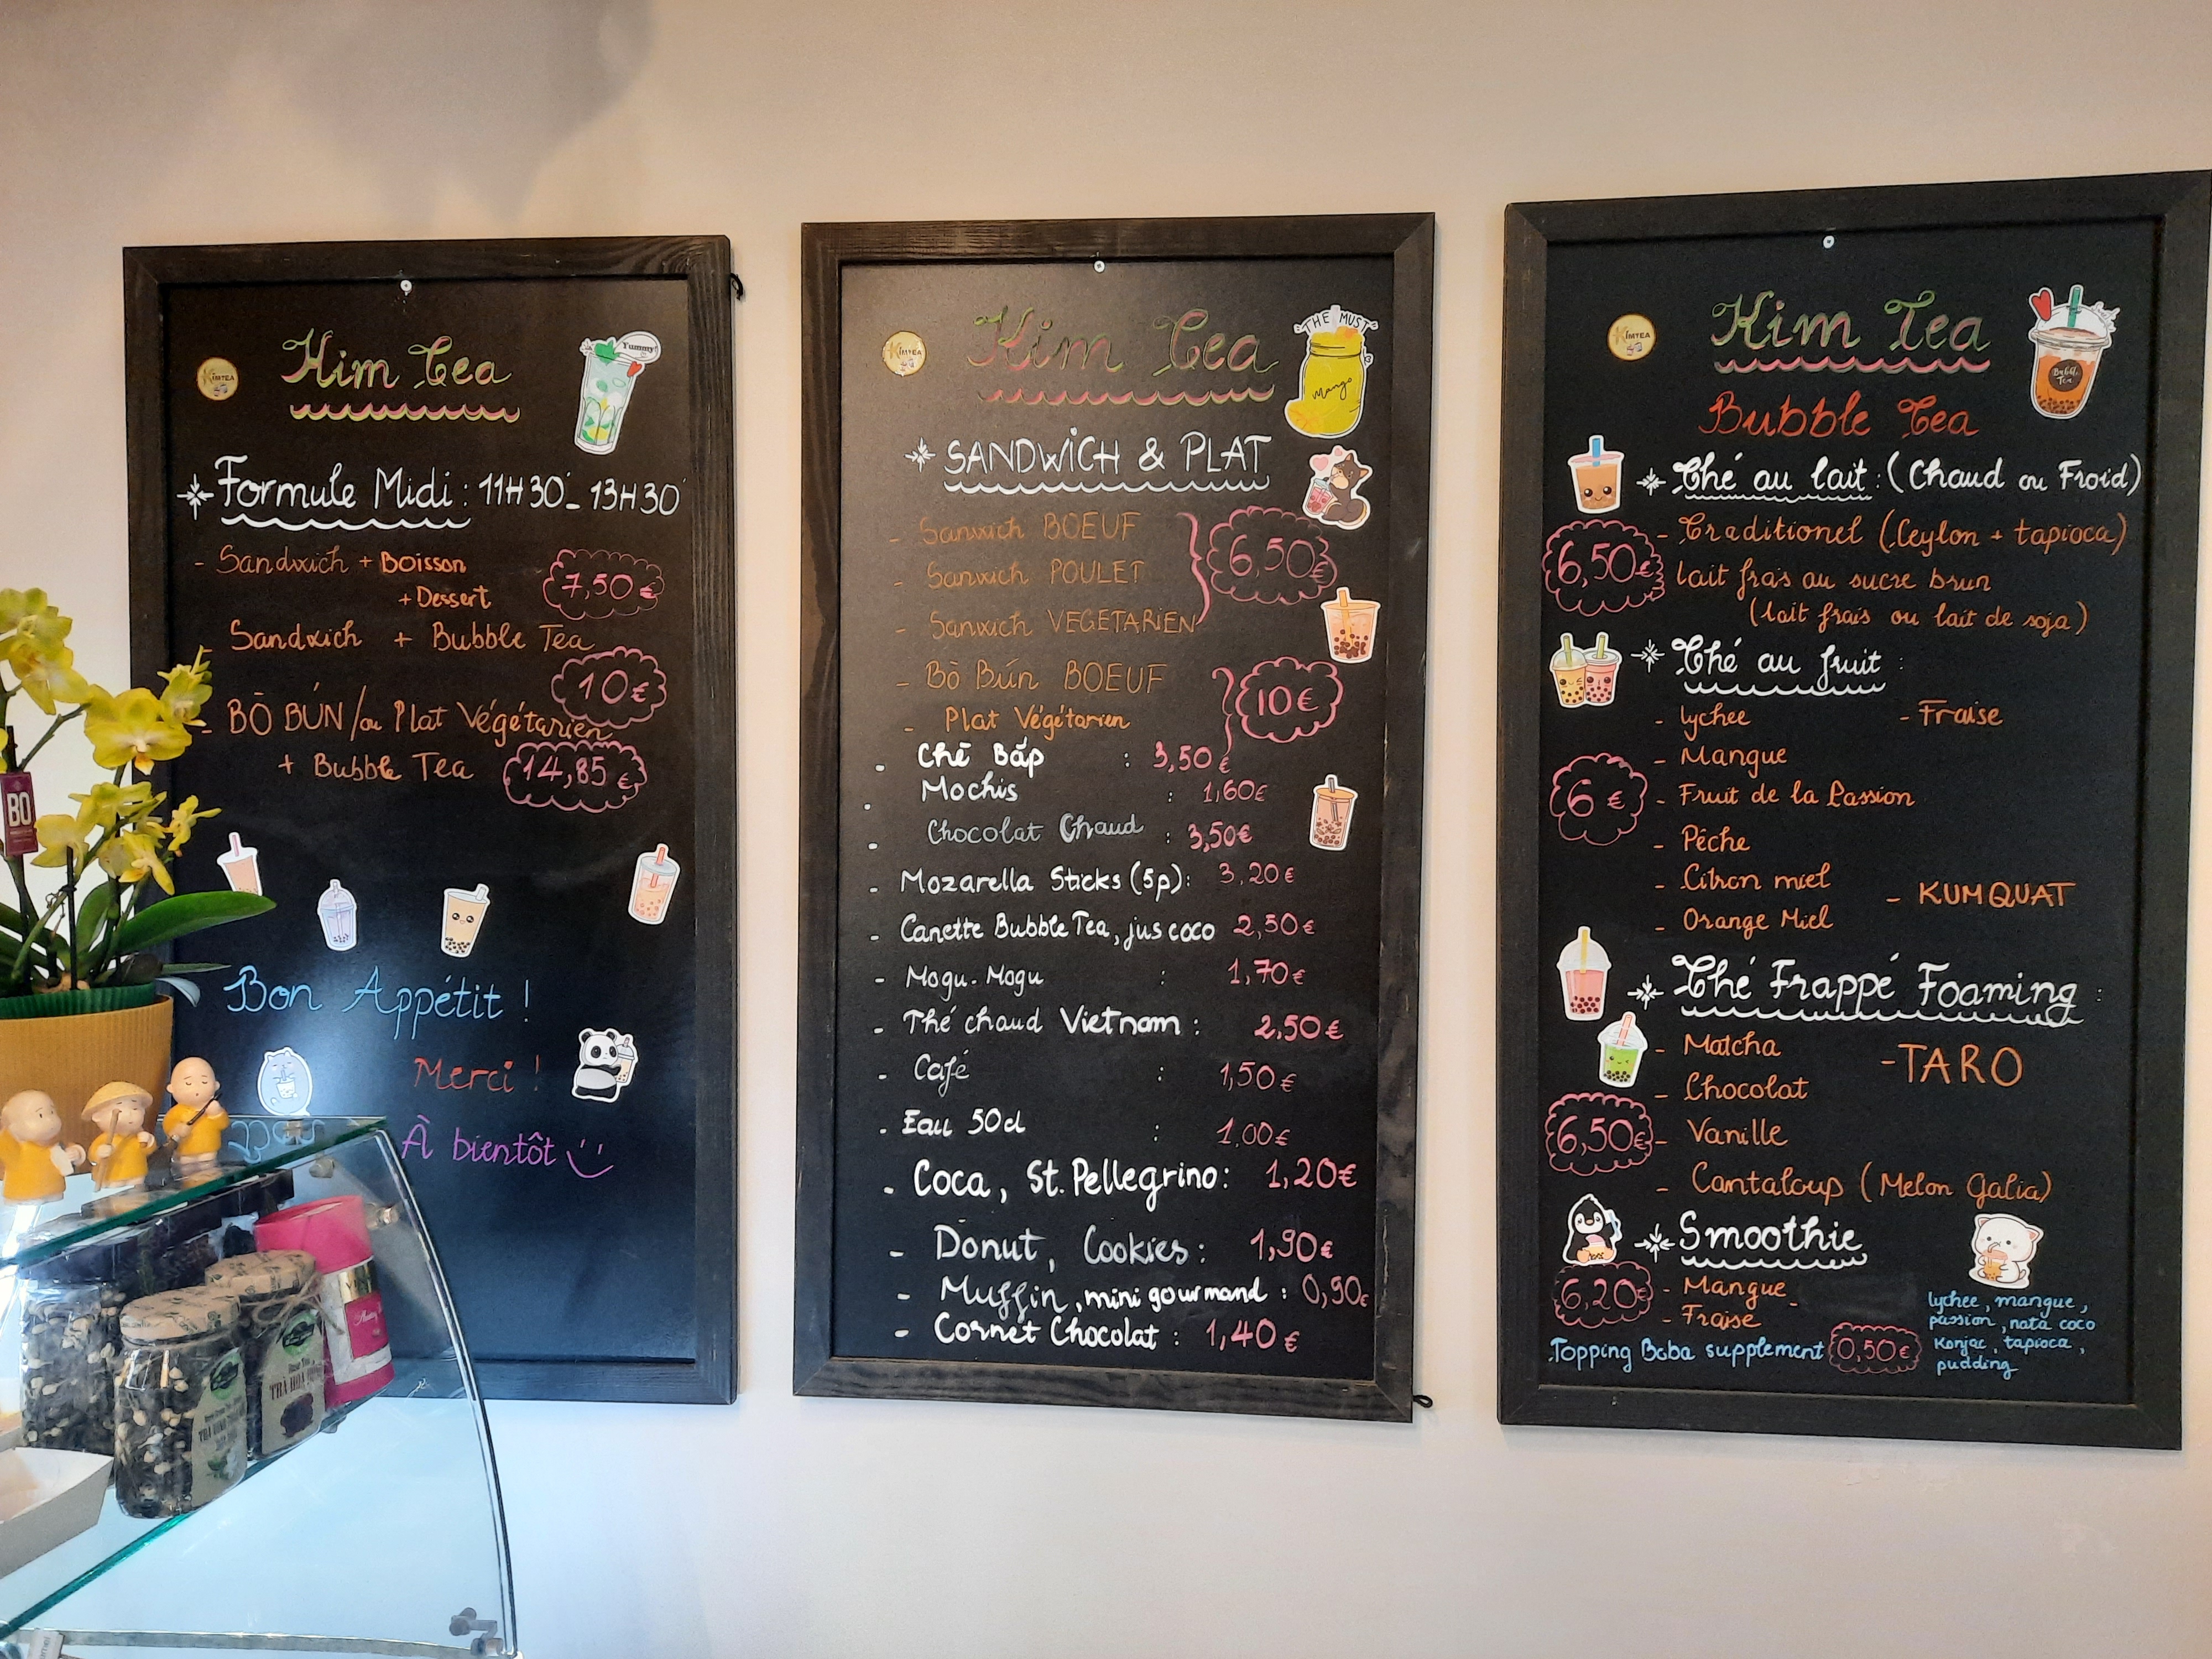 KIMTEA
Kim Tea
Yummy!
Formule Midi : 11H30'_ 13H30'
- Sandwich + Boisson
+ Dessert
7,50 €
- Sandwich + Bubble Tea
10 €
- BÒ BÚN /ou Plat Végétarien
+ Bubble Tea
14,85 €
Bon Appétit !
Merci !
À bientôt
BO
TRÀ HOA
KIMTEA
Kim Tea
THE MUST
Mango
SANDWICH & PLAT
- Sanwich BOEUF
- Sanwich POULET
- Sanwich VEGETARIEN
6,50€
- Bò Bún BOEUF
- Plat Végétarien
10€
. Chè Bắp : 3,50€
. Mochis : 1,60€
. Chocolat Chaud : 3,50€
- Mozarella Sticks (5p): 3,20€
- Canette Bubble Tea, jus coco 2,50€
- Mogu.Mogu : 1,70€
- Thé chaud Vietnam : 2,50€
- Café : 1,50€
. Eau 50cl : 1.00€
. Coca, St. Pellegrino: 1,20€
- Donut, Cookies : 1,90€
- Muffin, mini gourmand : 0,90€
- Cornet Chocolat : 1,40€
KIMTEA
Kim Tea
Bubble Tea
Bubble Tea
Thé au lait : (Chaud ou Froid)
- Traditionel (Ceylon + tapioca)
6,50€
lait frais au sucre brun
(lait frais ou lait de soja)
Thé au fruit :
- lychee - Fraise
- Mangue
6 €
- Fruit de la Passion
- Pêche
- Citron miel
- KUMQUAT
- Orange Miel
Thé Frappé Foaming :
- Matcha
- TARO
- Chocolat
6,50€
- Vanille
- Cantaloup (Melon Galia)
Smoothie
6,20€
- Mangue
- Fraise
Topping Boba supplement 0,50€
lychee, mangue,
passion, nata coco
Konjac, tapioca,
pudding